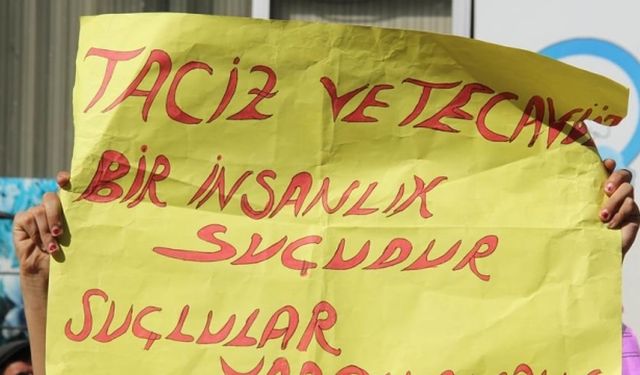 TACİZ VE TECAVÜZ
BİR İNSANLIK
SUÇUDUR
SUÇLULAR